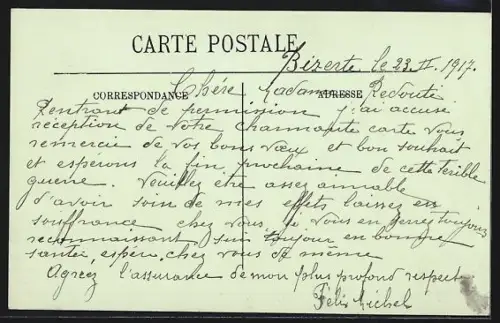 CARTE POSTALE
Bizerte le 23. II. 1917.
CORRESPONDANCE
ADRESSE
Chère Madame Redouté
Rentrant de permission j'ai accuse
réception de votre charmante carte vous
remercie de vos bons vœux et bon souhait
et espérons la fin prochaine de cette terible
guerre. Veuillez être assez aimable
d'avoir soin de mes effets laissez en
souffrance chez vous, je vous en serres toujours
reconnaissant suis toujour en bonne
santer, espère, chez vous de même
Agreez l'assurance de mon plus profond respect
Félix Michel